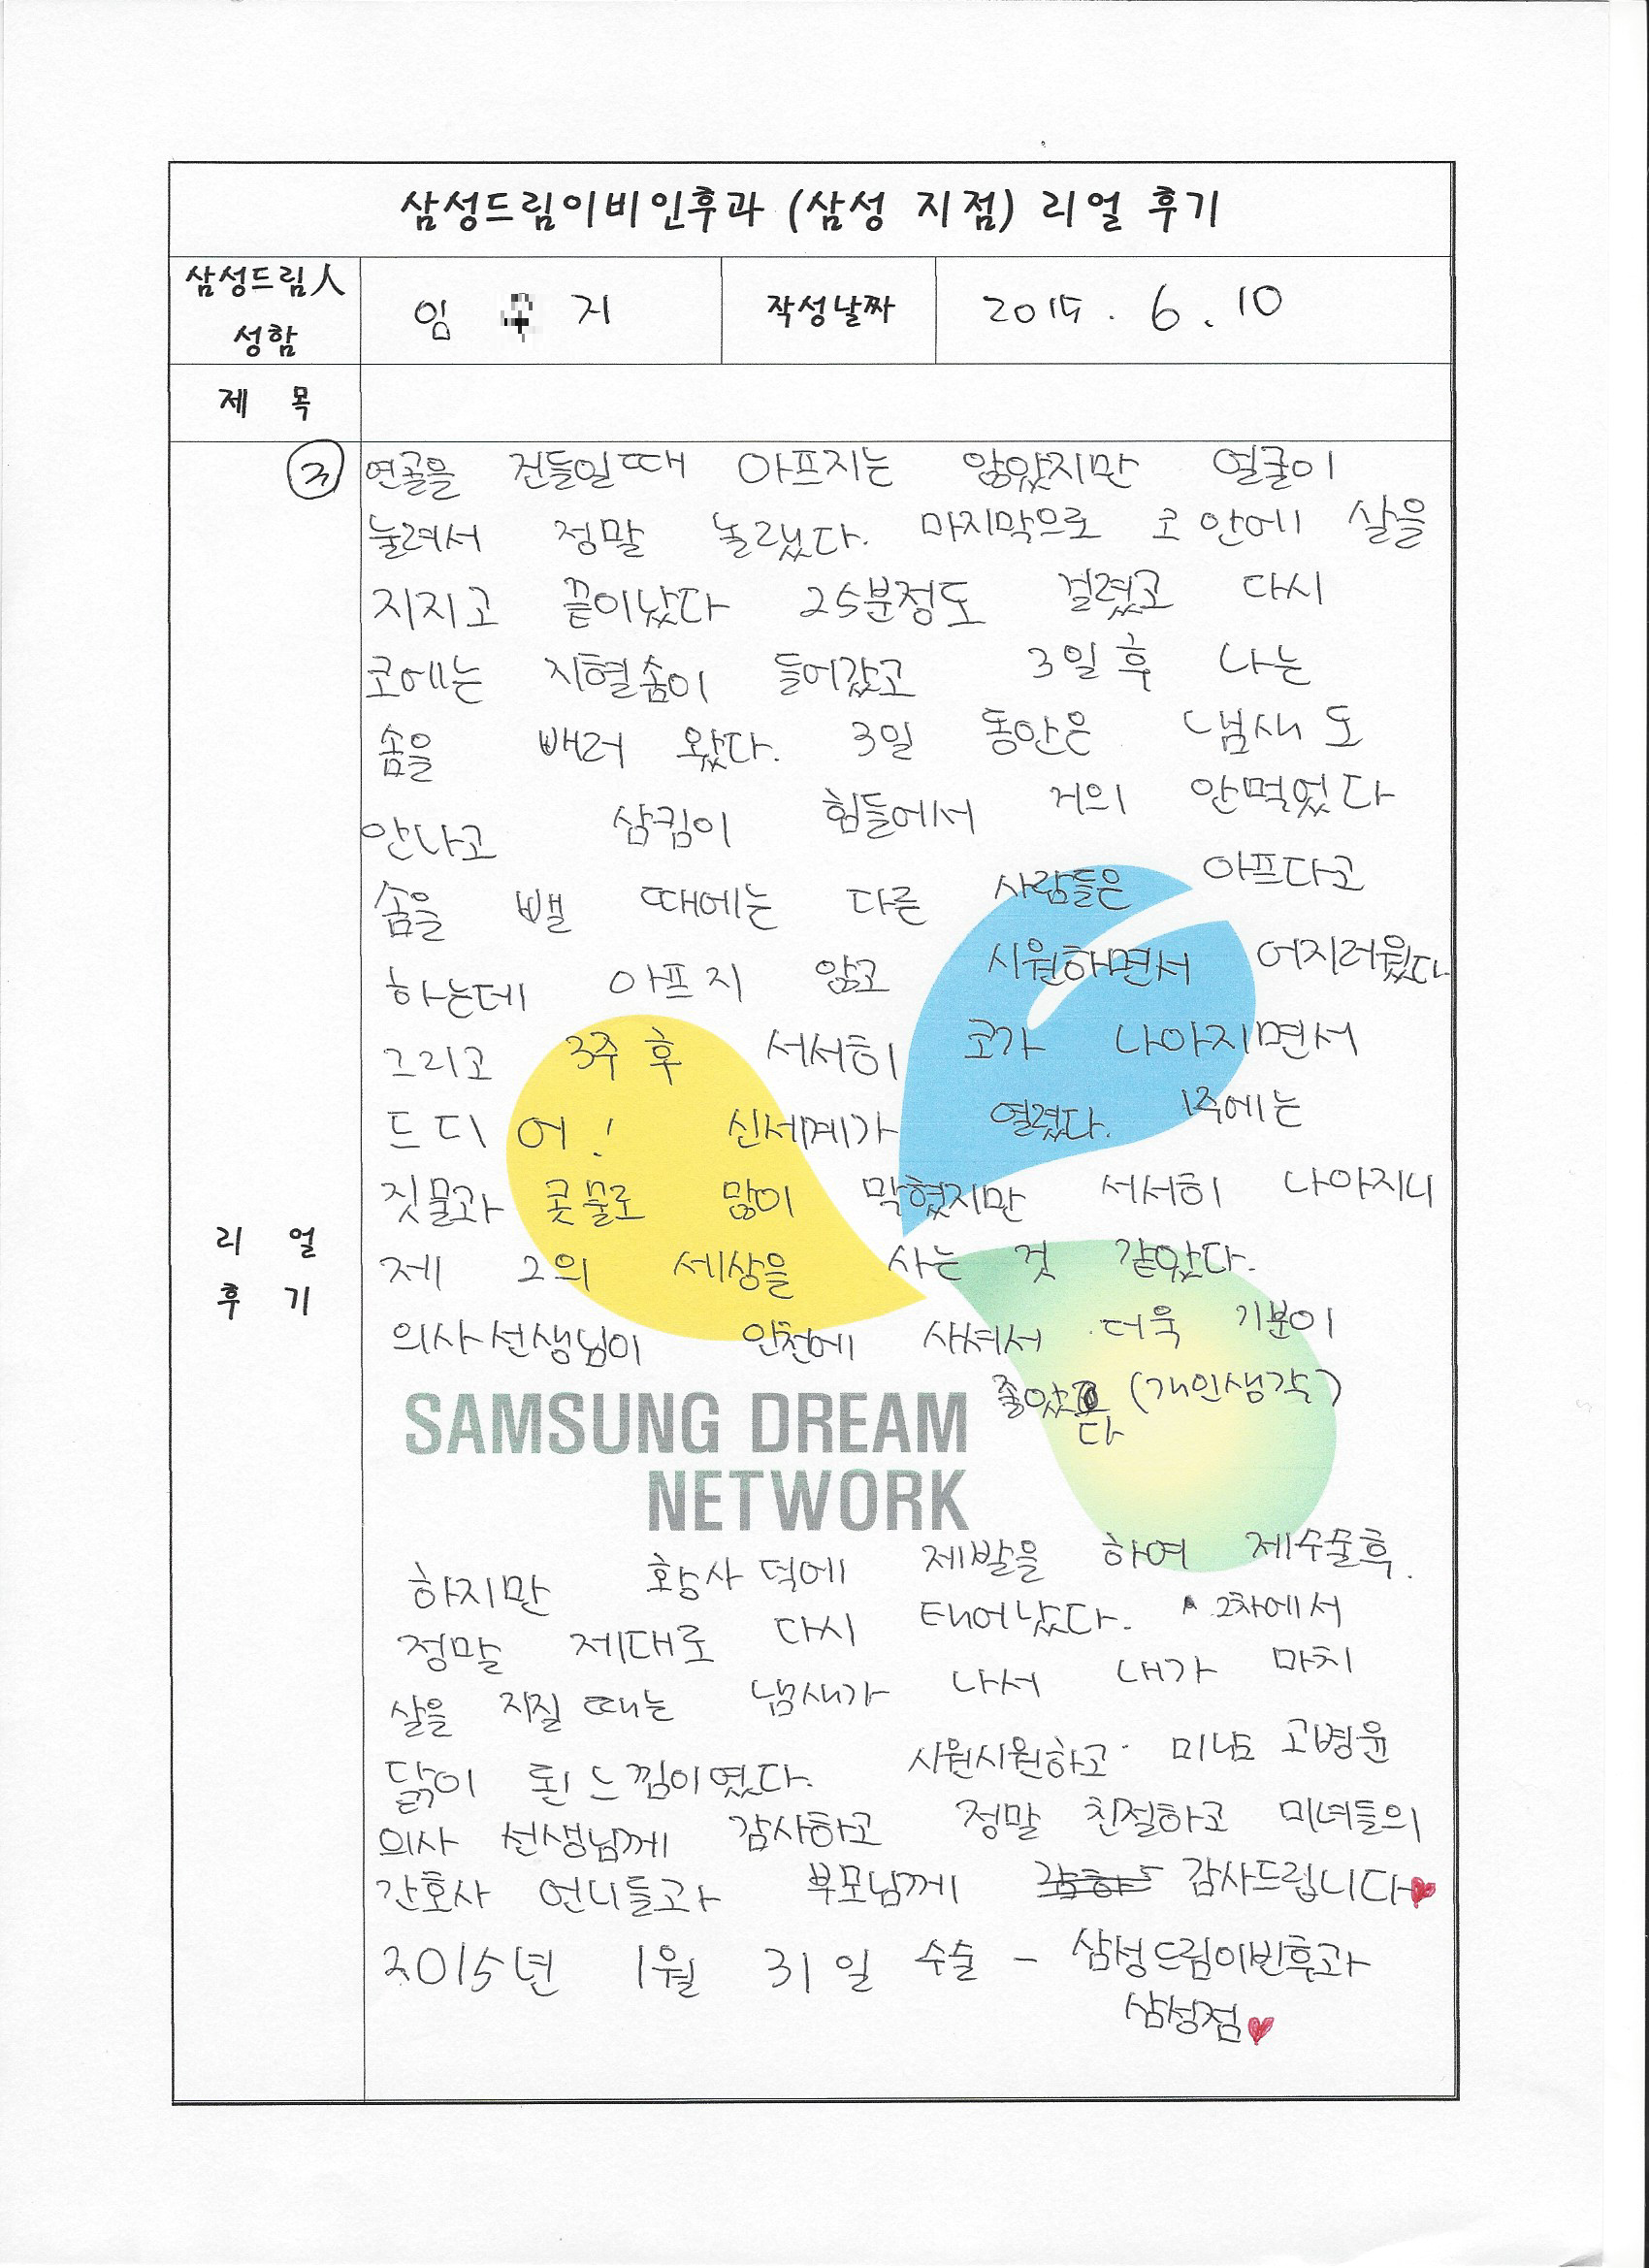 삼성드림이비인후과 (삼성 지점) 리얼 후기
삼성드림人 성함
임 지
작성날짜
2015. 6. 10
제 목
③ 연골을 건들일때 아프지는 않았지만 얼굴이
눌려서 정말 놀랐다. 마지막으로 코 안에 살을
지지고 끝이났다 25분정도 걸렸고 다시
코에는 지혈솜이 들어갔고 3일후 나는
솜을 빼러 왔다. 3일 동안은 냄새도
안나고 삼킴이 힘들에서 거의 안먹었다
솜을 뺄 때에는 다른 사람들은 아프다고
하는데 아프지 않고 시원하면서 어지러웠다
그리고 3주후 서서히 코가 나아지면서
드디어! 신세계가 열렸다. 1주에는
짓물과 콧물로 많이 막혔지만 서서히 나아지니
제 2의 세상을 사는 것 같았다.
의사선생님이 인천에 사셔서 더욱 기분이
좋았다 (개인생각)
리 얼
후 기
SAMSUNG DREAM
NETWORK
하지만 황사덕에 제발을 하여 제수술후.
정말 제대로 다시 태어났다. 2차에서
살을 지질때는 냄새가 나서 내가 마치
닭이 된느낌이였다. 시원시원하고 미남 고병윤
의사 선생님께 감사하고 정말 친절하고 미녀들의
간호사 언니들과 부모님께 감사드립니다♥
2015년 1월 31일 수술 - 삼성드림이빈후과
삼성점♥